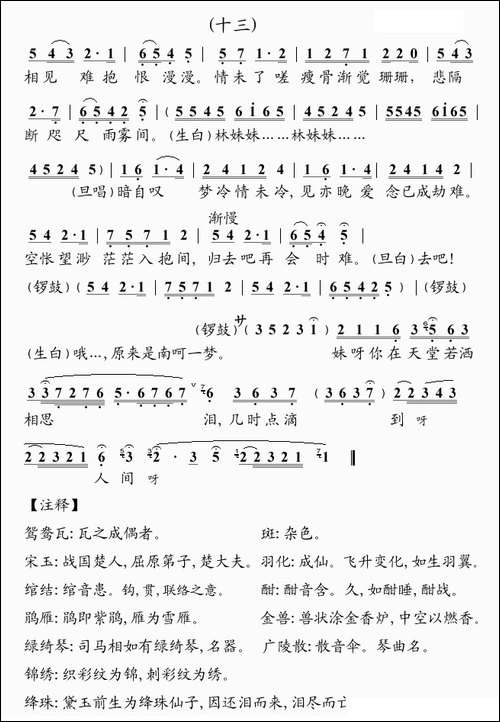 (十三)
5 4 3 2·1 | 6 5 4 5 | 5 7 1·2 | 1 2 7 1 2 2 0 | 5 4 3
相见 难抱 恨 漫漫。情未了嗟 瘦骨渐觉 珊珊, 悲隔
2·7 | 6 5 4 2 5 | (5 5 4 5 6 i 6 5 | 4 5 2 4 5 | 5545 6i65 |
断 咫尺 雨雾间。(生白)林妹妹……林妹妹……
4 5 2 4 5) | 1 6 1·4 | 2 4 1 2 4 | 1 6 1·4 | 2 4 1 4 2 |
(旦唱)暗自叹 梦冷情未冷,见亦晚爱 念已成劫难。
渐慢
5 4 2·1 | 7 5 7 1 2 | 5 4 2·1 | 6 5 4 5 |
空怅望渺 茫茫入抱间, 归去吧再会 时难。(旦白)去吧!
(锣鼓) (5 4 2·1 | 7 5 7 1 2 | 5 4 2·1 | 6 5 4 2 5) | (锣鼓)
(锣鼓) サ (3 5 2 3 1) 2 1 1 6 3 5 6 3
(生白)哦…,原来是南呵一梦。 妹呀你在天堂若洒
3 3 7 2 7 6 5·6 7 6 7 6 3 6 3 7 (3 6 3 7) 2 2 3 4 3
相思 泪,几时点滴 到呀
2 2 3 2 1 6 3 2·3 5 2 2 3 2 1 1
人间呀
【注释】
鸳鸯瓦: 瓦之成偶者。 斑: 杂色。
宋玉: 战国楚人, 屈原第子, 楚大夫。 羽化: 成仙。飞升变化, 如生羽翼。
绾结: 绾音患。钩, 贯, 联络之意。 酣: 酣音含。久, 如酣睡, 酣战。
鹝雁: 鹝即紫鹝, 雁为雪雁。 金兽: 兽状涂金香炉, 中空以燃香。
绿绮琴: 司马相如有绿绮琴, 名器。 广陵散: 散音伞。琴曲名。
锦绣: 织彩纹为锦, 刺彩纹为绣。
绛珠: 黛玉前生为绛珠仙子, 因还泪而来, 泪尽而亡